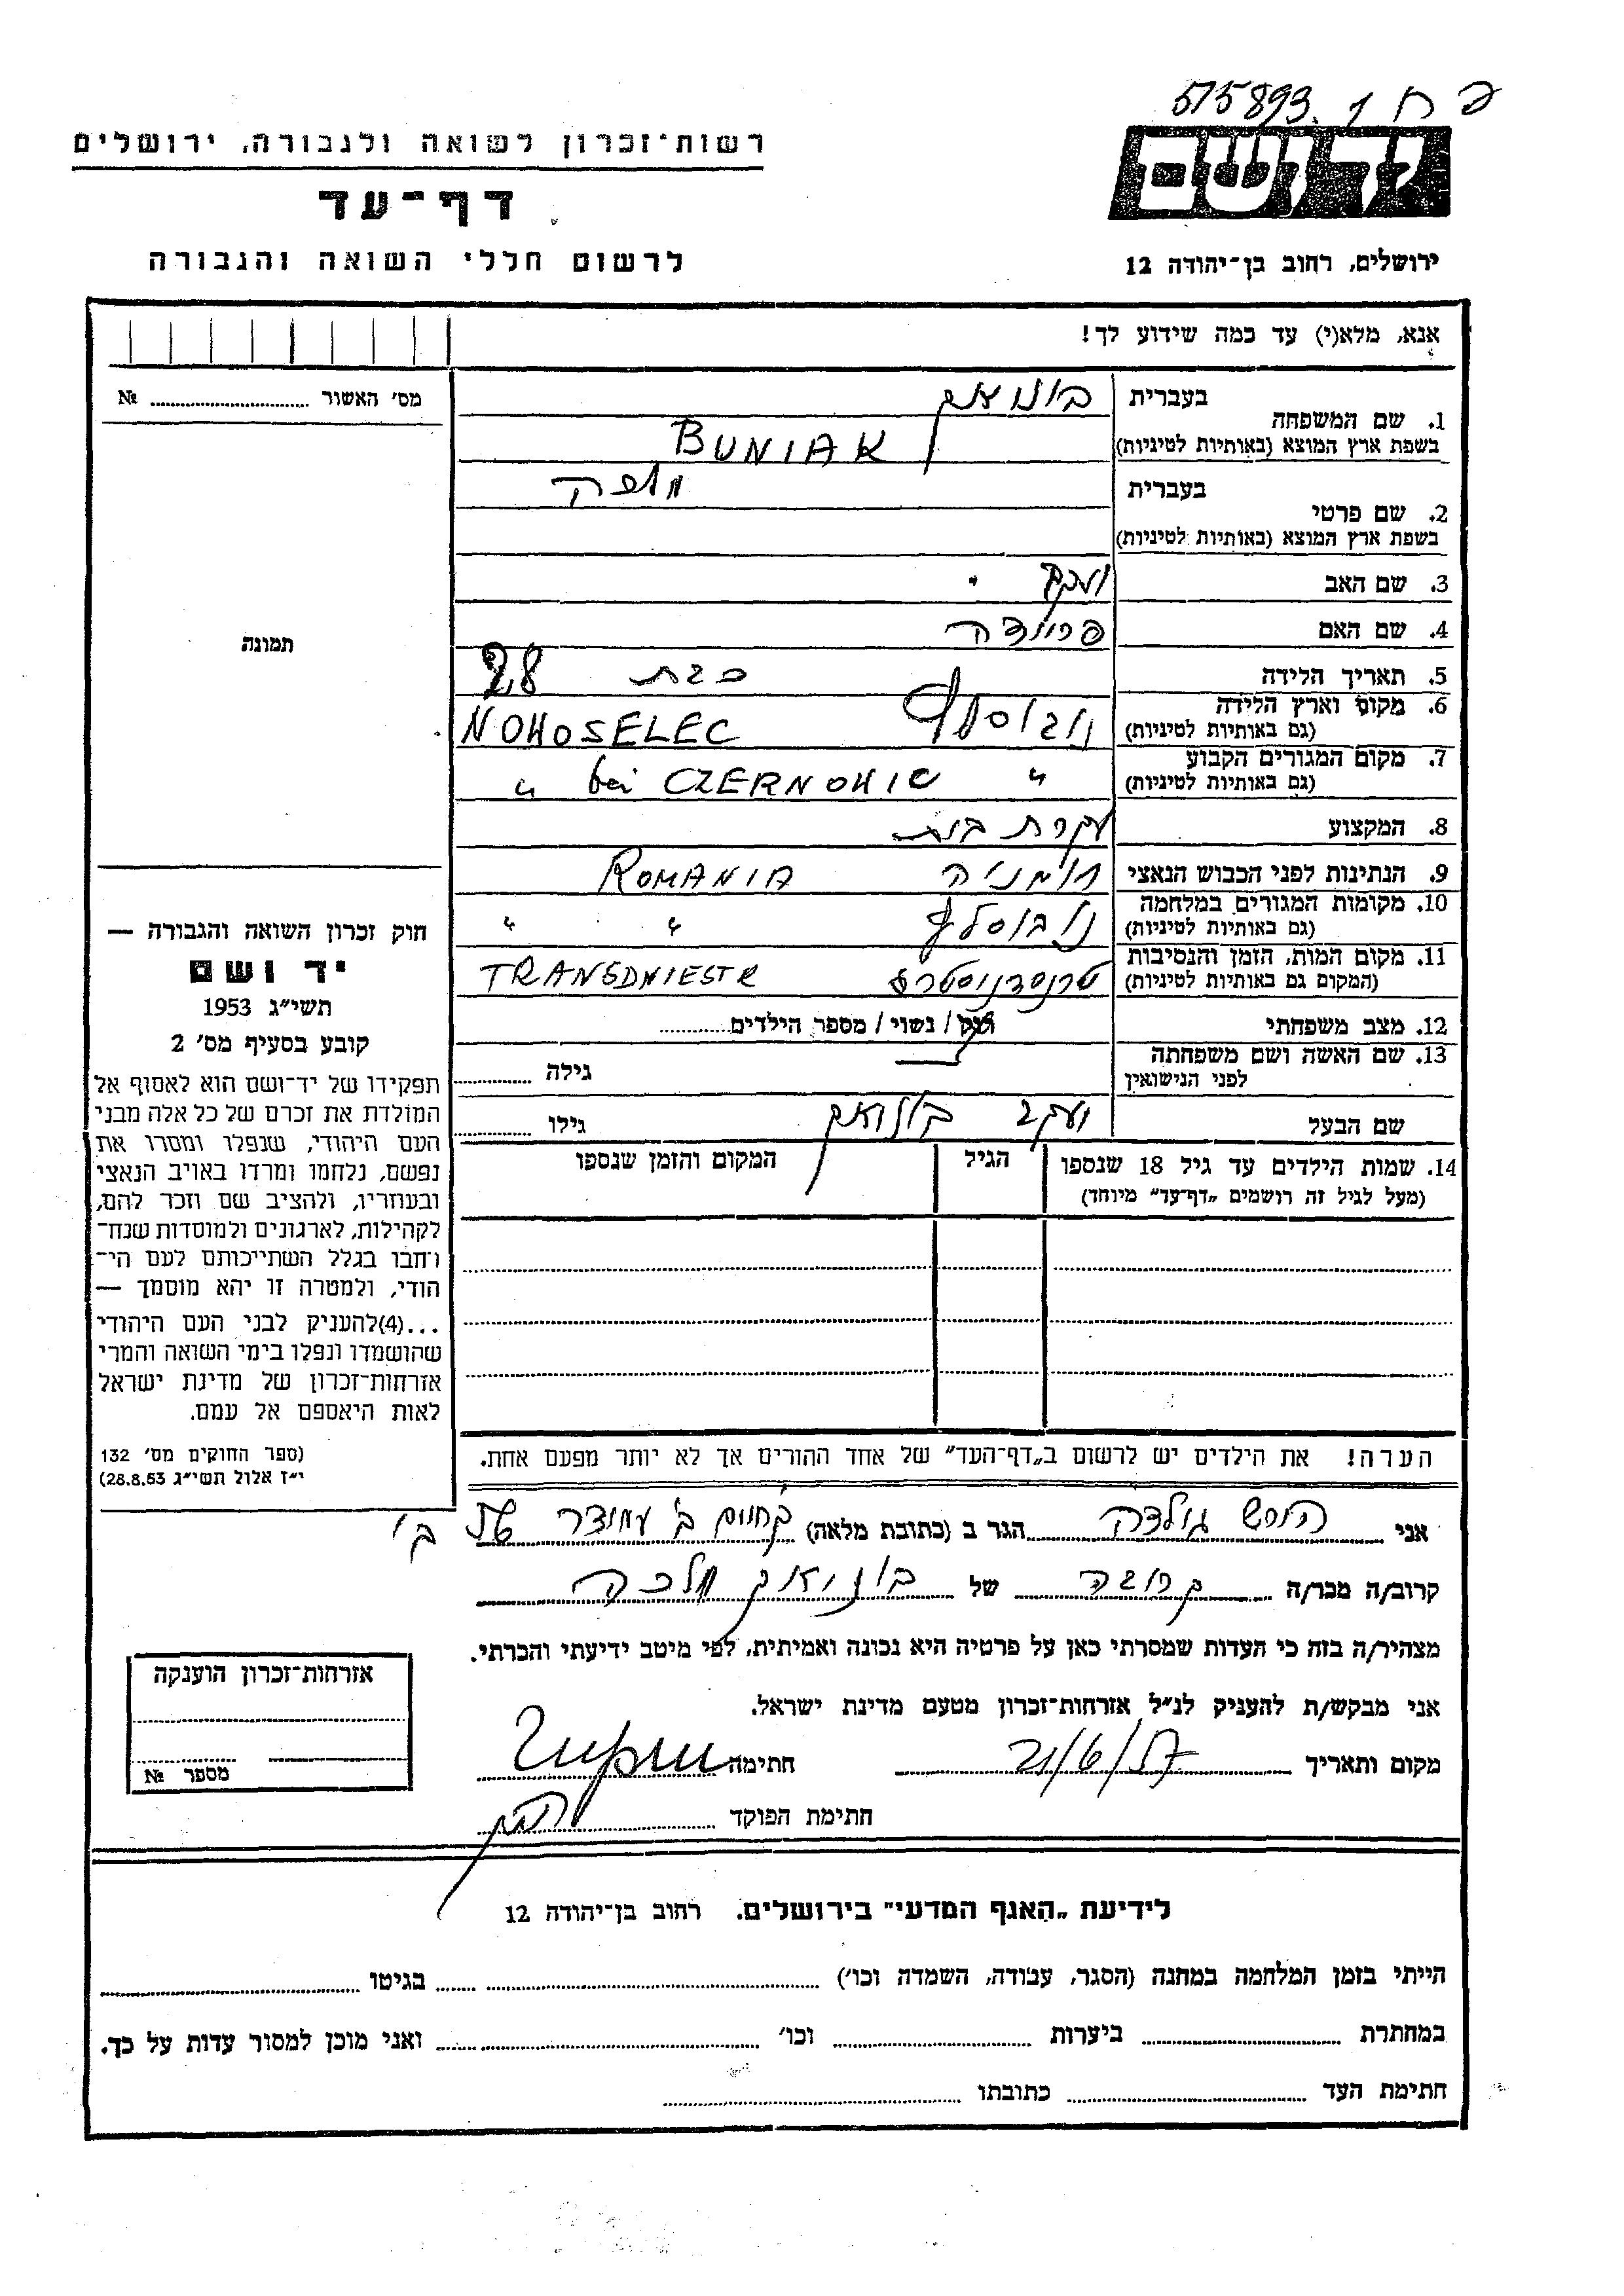 פ ח 1 575893
ידושם
ירושלים, רחוב בן־יהודה 12
רשות־זכרון לשואה ולגבורה, ירושלים
דף־עד
לרשום חללי השואה והגבורה
אנא, מלא(י) עד כמה שידוע לך!
מס' האשור № ....................
תמונה
1. שם המשפחה
בעברית
בוניאק
בשפת ארץ המוצא (באותיות לטיניות)
BUNIAK
2. שם פרטי
בעברית
מלכה
בשפת ארץ המוצא (באותיות לטיניות)
3. שם האב
יעקב
4. שם האם
פרידה
5. תאריך הלידה
כבת 28
6. מקום וארץ הלידה
(גם באותיות לטיניות)
NOWOSELEC
7. מקום המגורים הקבוע
(גם באותיות לטיניות)
" bei CZERNOWIC "
8. המקצוע
עקרת בית
9. הנתינות לפני הכבוש הנאצי
רומניה ROMANIA
10. מקומות המגורים במלחמה
(גם באותיות לטיניות)
" "
11. מקום המות, הזמן והנסיבות
(המקום גם באותיות לטיניות)
TRANSDNIESTR
12. מצב משפחתי
רוק / נשוי / מספר הילדים............
13. שם האשה ושם משפחתה
לפני הנישואין
גילה ............
שם הבעל
יעקב בוניאק
גילו ............
14. שמות הילדים עד גיל 18 שנספו
(מעל לגיל זה רושמים „דף־עד" מיוחד)
הגיל
המקום והזמן שנספו
הערה! את הילדים יש לרשום ב„דף־העד" של אחד ההורים אך לא יותר מפעם אחת.
חוק זכרון השואה והגבורה —
יד ושם
תשי״ג 1953
קובע בסעיף מס' 2
תפקידו של יד־ושם הוא לאסוף אל
המולדת את זכרם של כל אלה מבני
העם היהודי, שנפלו ומסרו את
נפשם, נלחמו ומרדו באויב הנאצי
ובעוזריו, ולהציב שם וזכר להם,
לקהילות, לארגונים ולמוסדות שנח־
רבו בגלל השתייכותם לעם הי־
הודי, ולמטרה זו יהא מוסמך —
...(4)להעניק לבני העם היהודי
שהושמדו ונפלו בימי השואה והמרי
אזרחות־זכרון של מדינת ישראל
לאות היאספם אל עמם.
(ספר החוקים מס' 132
י״ז אלול תשי״ג 28.8.53)
אני גולדה הגר ב (כתובת מלאה)
קרוב/ה מכר/ה קרובה של בוניאק מלכה
מצהיר/ה בזה כי העדות שמסרתי כאן על פרטיה היא נכונה ואמיתית, לפי מיטב ידיעתי והכרתי.
אני מבקש/ת להעניק לנ״ל אזרחות־זכרון מטעם מדינת ישראל.
מקום ותאריך 21/6/57 חתימה
חתימת הפוקד
אזרחות־זכרון הוענקה
מספר №
לידיעת „האגף המדעי" בירושלים. רחוב בן־יהודה 12
הייתי בזמן המלחמה במחנה (הסגר, עבודה, השמדה וכו') .................... בגיטו ....................
במחתרת .................... ביערות .................... וכו' .................... ואני מוכן למסור עדות על כך.
חתימת העד .................... כתובתו ....................